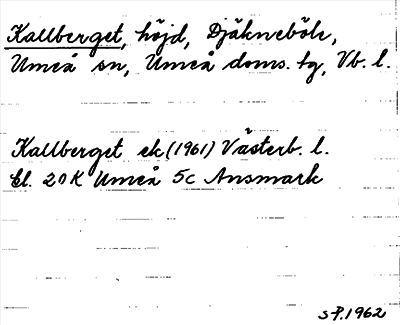 Kallberget, höjd, Djäkneböle,
Umeå sn, Umeå doms. tg, Vb. l.
Kallberget ek (1961) Västerb. l.
bl. 20 K Umeå 5c Ansmark
SP. 1962